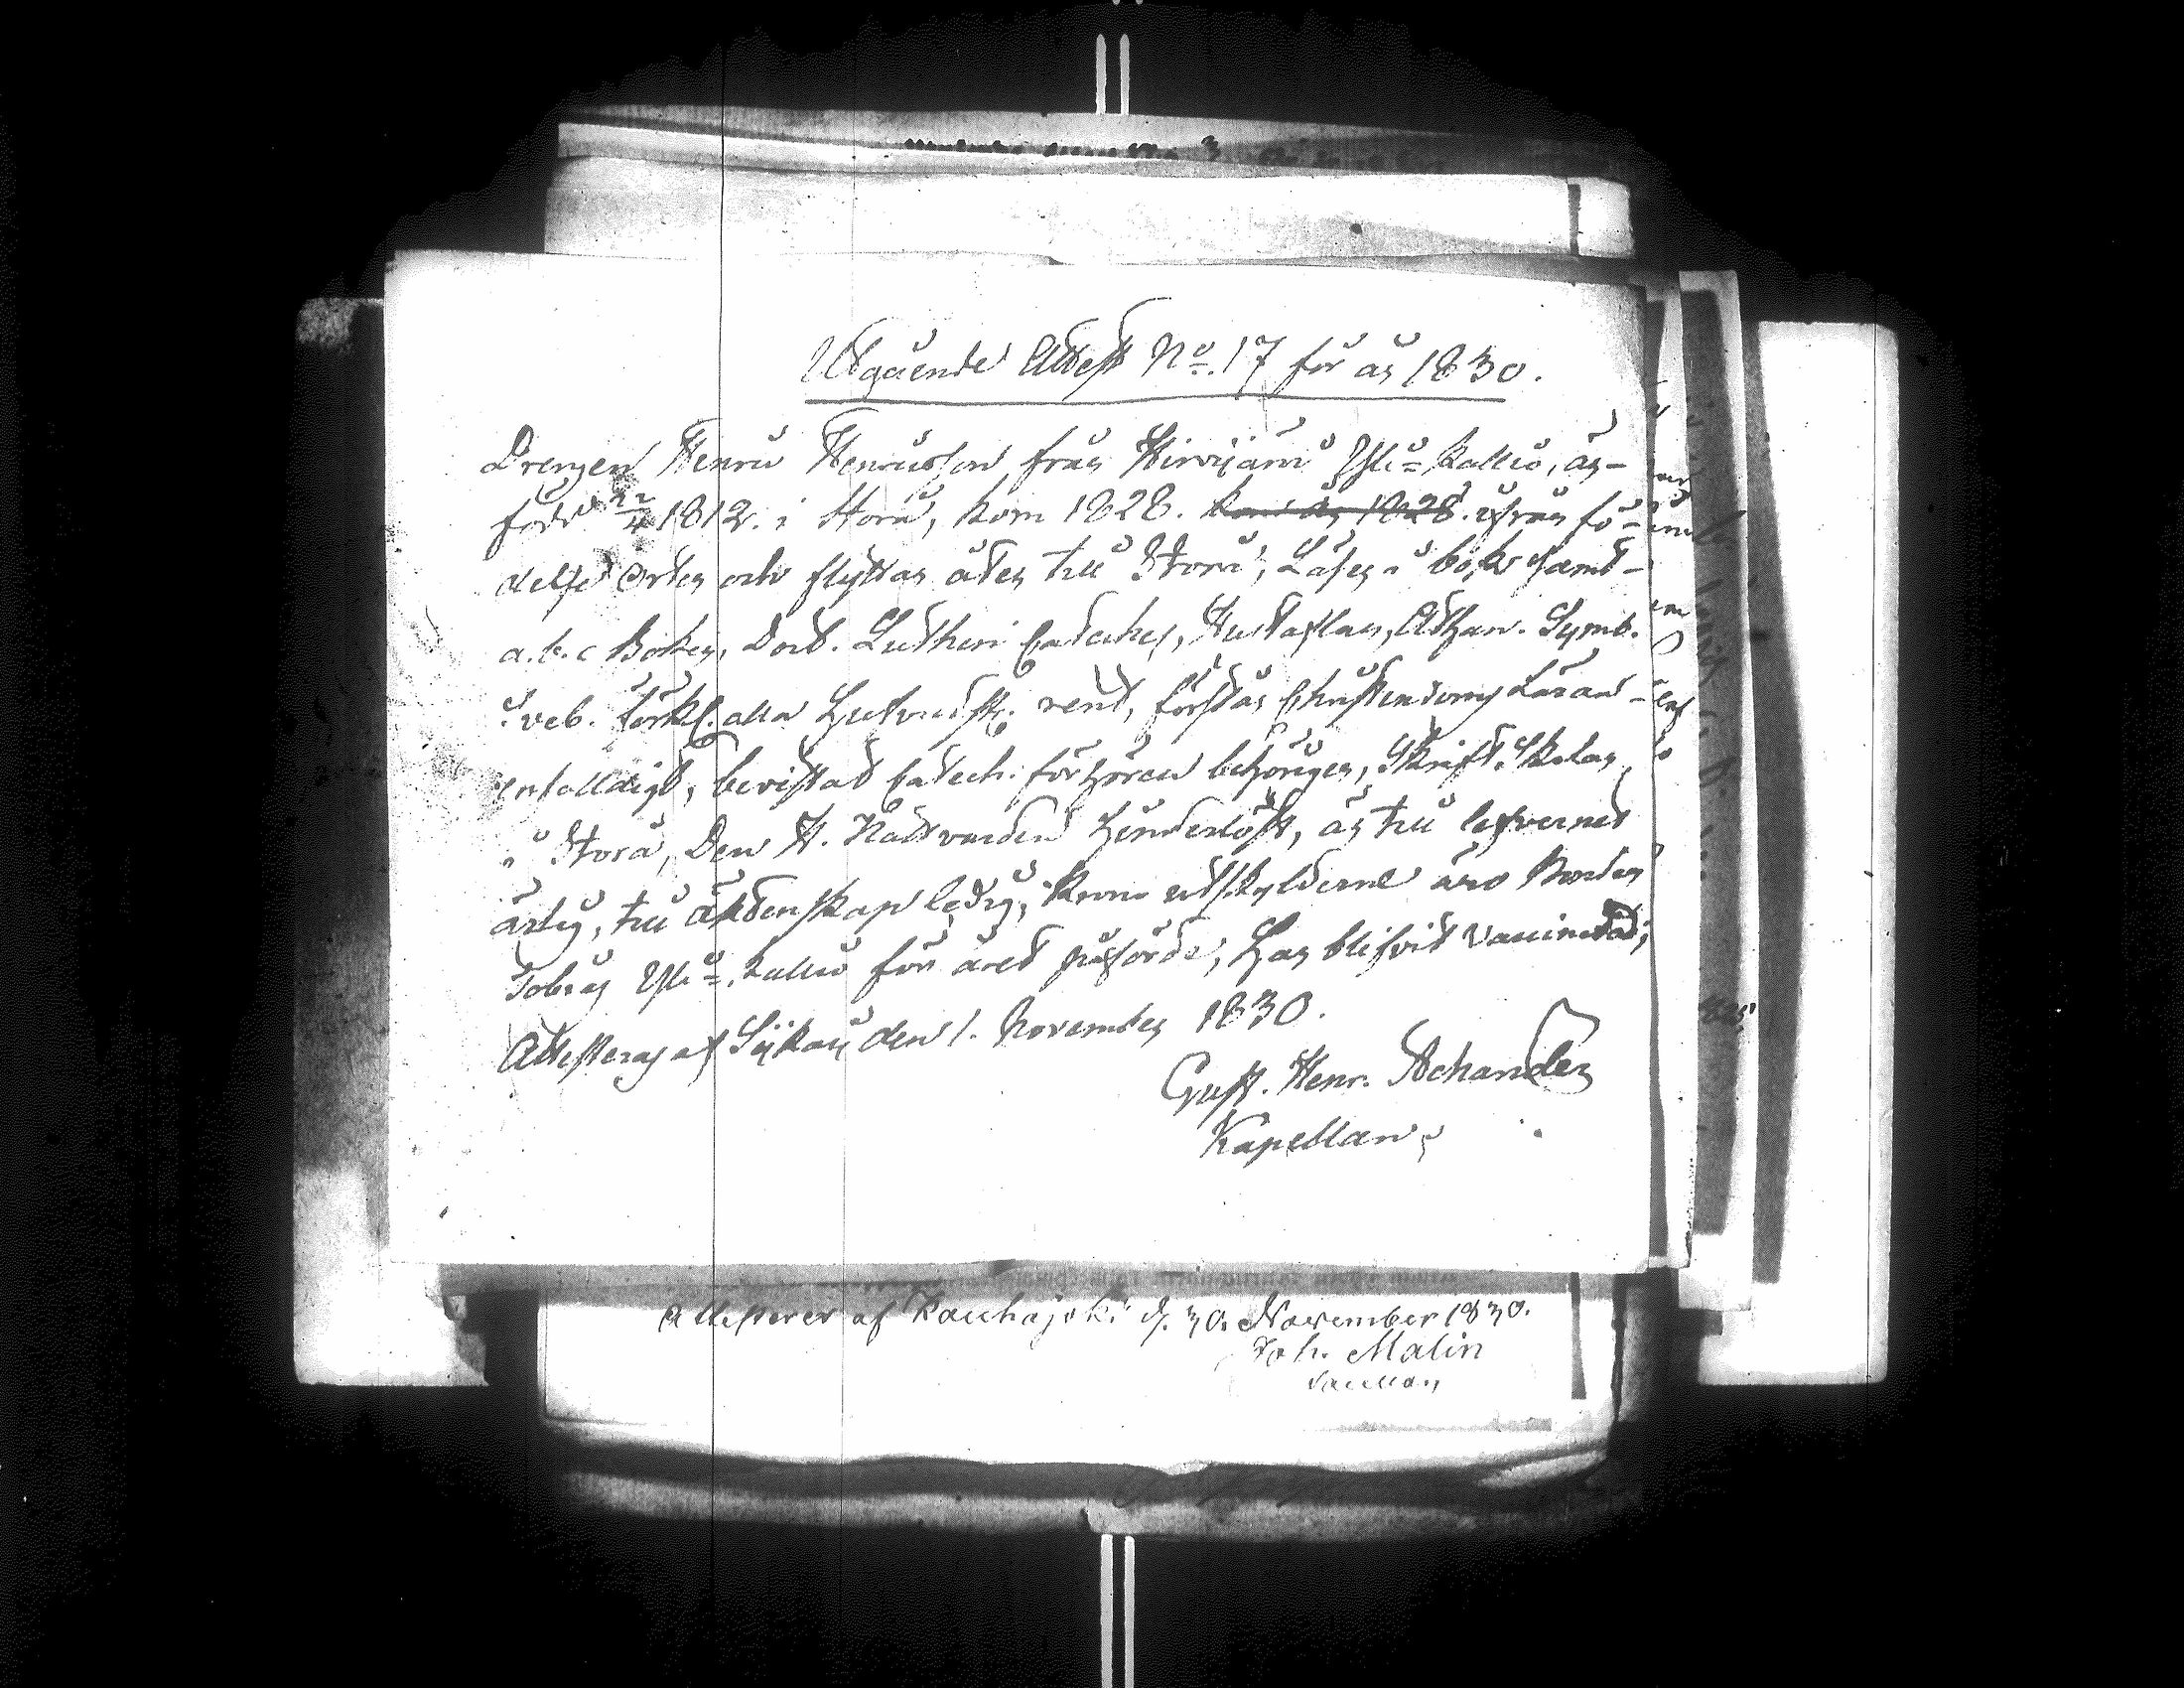 Utgående Attest No. 17 för år 1830.
Drengen Henric Henricsson från Hirvijärvi Yli-Kallio, är
född 22/4 1812. i Storå, kom 1828. kom år 1828. ifrån fö-
delse Orten och flyttar åter till Storå; Läser i bok samt
a.b.c Boken, Doct. Lutheri Cateches, Hustaflan, Athan. Symb.
Sveb. Förkl. alla Hufvudst. rent, förstår Christendoms Läran
enfalldigt, bevistat Catech. förhören behörigen, Skrift Skolan
i Storå, Den H. Nattvarden hinderlöst, är till lefvernet
ärlig, till Äktenskap ledig, Krono utskylderne äro Bonden
Tobias Yli-Kallio för året påförde, har blifvit vaccinerad;
Attesteras af Jijkoij den 1. November 1830.
Gust. Henr. Achander
Kapellan
attesterer af Kauhajoki d. 30. November 1830.
Joh. Malin